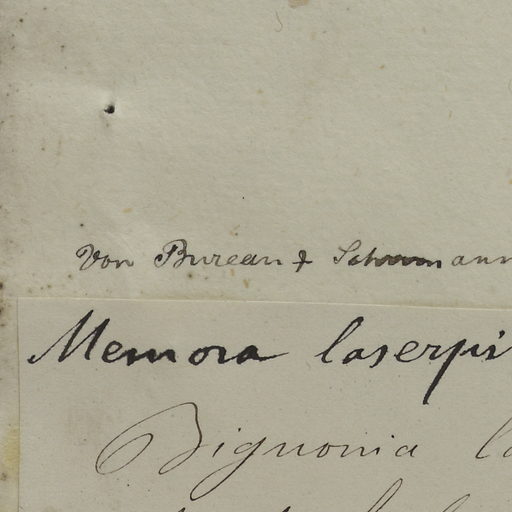 Von Bureau & Schumann
Memora laserpi
Bignonia la